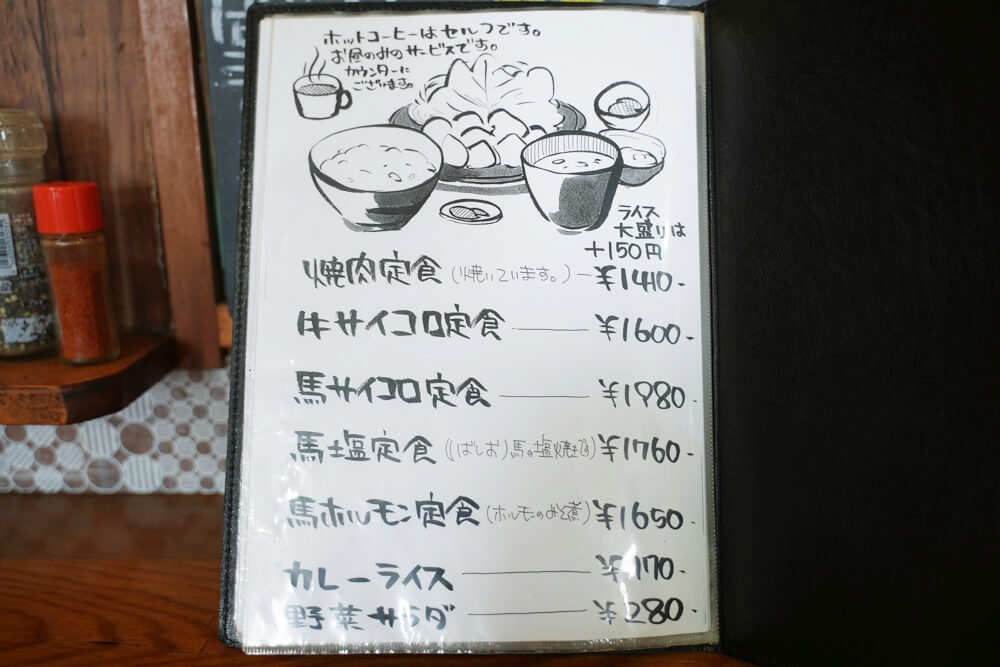 ホットコーヒーはセルフです。
お昼のみのサービスです。
カウンターに
ございます。
ライス
大盛りは
+150円
焼肉定食(焼いています。)ー¥1410-
牛サイコロ定食 ¥1600-
馬サイコロ定食 ¥1980-
馬塩定食(ばしお)馬の塩焼き ¥1760-
馬ホルモン定食(ホルモンのみそ煮)¥1650-
カレーライス
野菜サラダ ¥280-